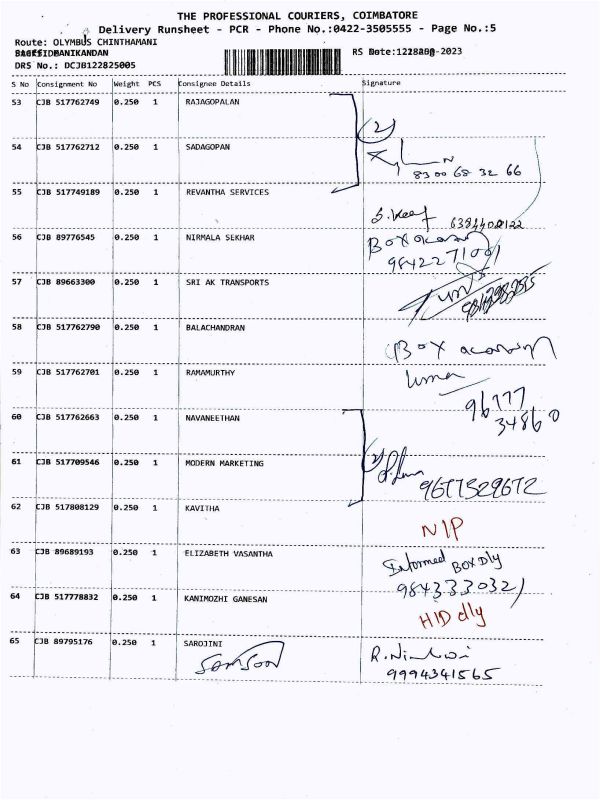 THE PROFESSIONAL COURIERS, COIMBATORE
Delivery Runsheet - PCR - Phone No.:0422-3505555 - Page No.:5
Route: OLYMBUS CHINTHAMANI
MANIKANDAN
RS Date: -2023
DRS No.: DCJB122825005
S No Consignment No Weight PCS Consignee Details Signature
53 CJB 517762749 0.250 1 RAJAGOPALAN
(2)
54 CJB 517762712 0.250 1 SADAGOPAN
8300 68 32 66
55 CJB 517749189 0.250 1 REVANTHA SERVICES
56 CJB 89776545 0.250 1 NIRMALA SEKHAR
Box
9842271001
57 CJB 89663300 0.250 1 SRI AK TRANSPORTS
58 CJB 517762790 0.250 1 BALACHANDRAN
Box
59 CJB 517762701 0.250 1 RAMAMURTHY
uma
96777
34860
60 CJB 517762663 0.250 1 NAVANEETHAN
61 CJB 517709546 0.250 1 MODERN MARKETING
(2)
9677529672
62 CJB 517808129 0.250 1 KAVITHA
N/P
63 CJB 89689193 0.250 1 ELIZABETH VASANTHA
Informed BOX Dly
9843330321
64 CJB 517778832 0.250 1 KANIMOZHI GANESAN
HID dly
65 CJB 89795176 0.250 1 SAROJINI
SAMSOON
9994341565